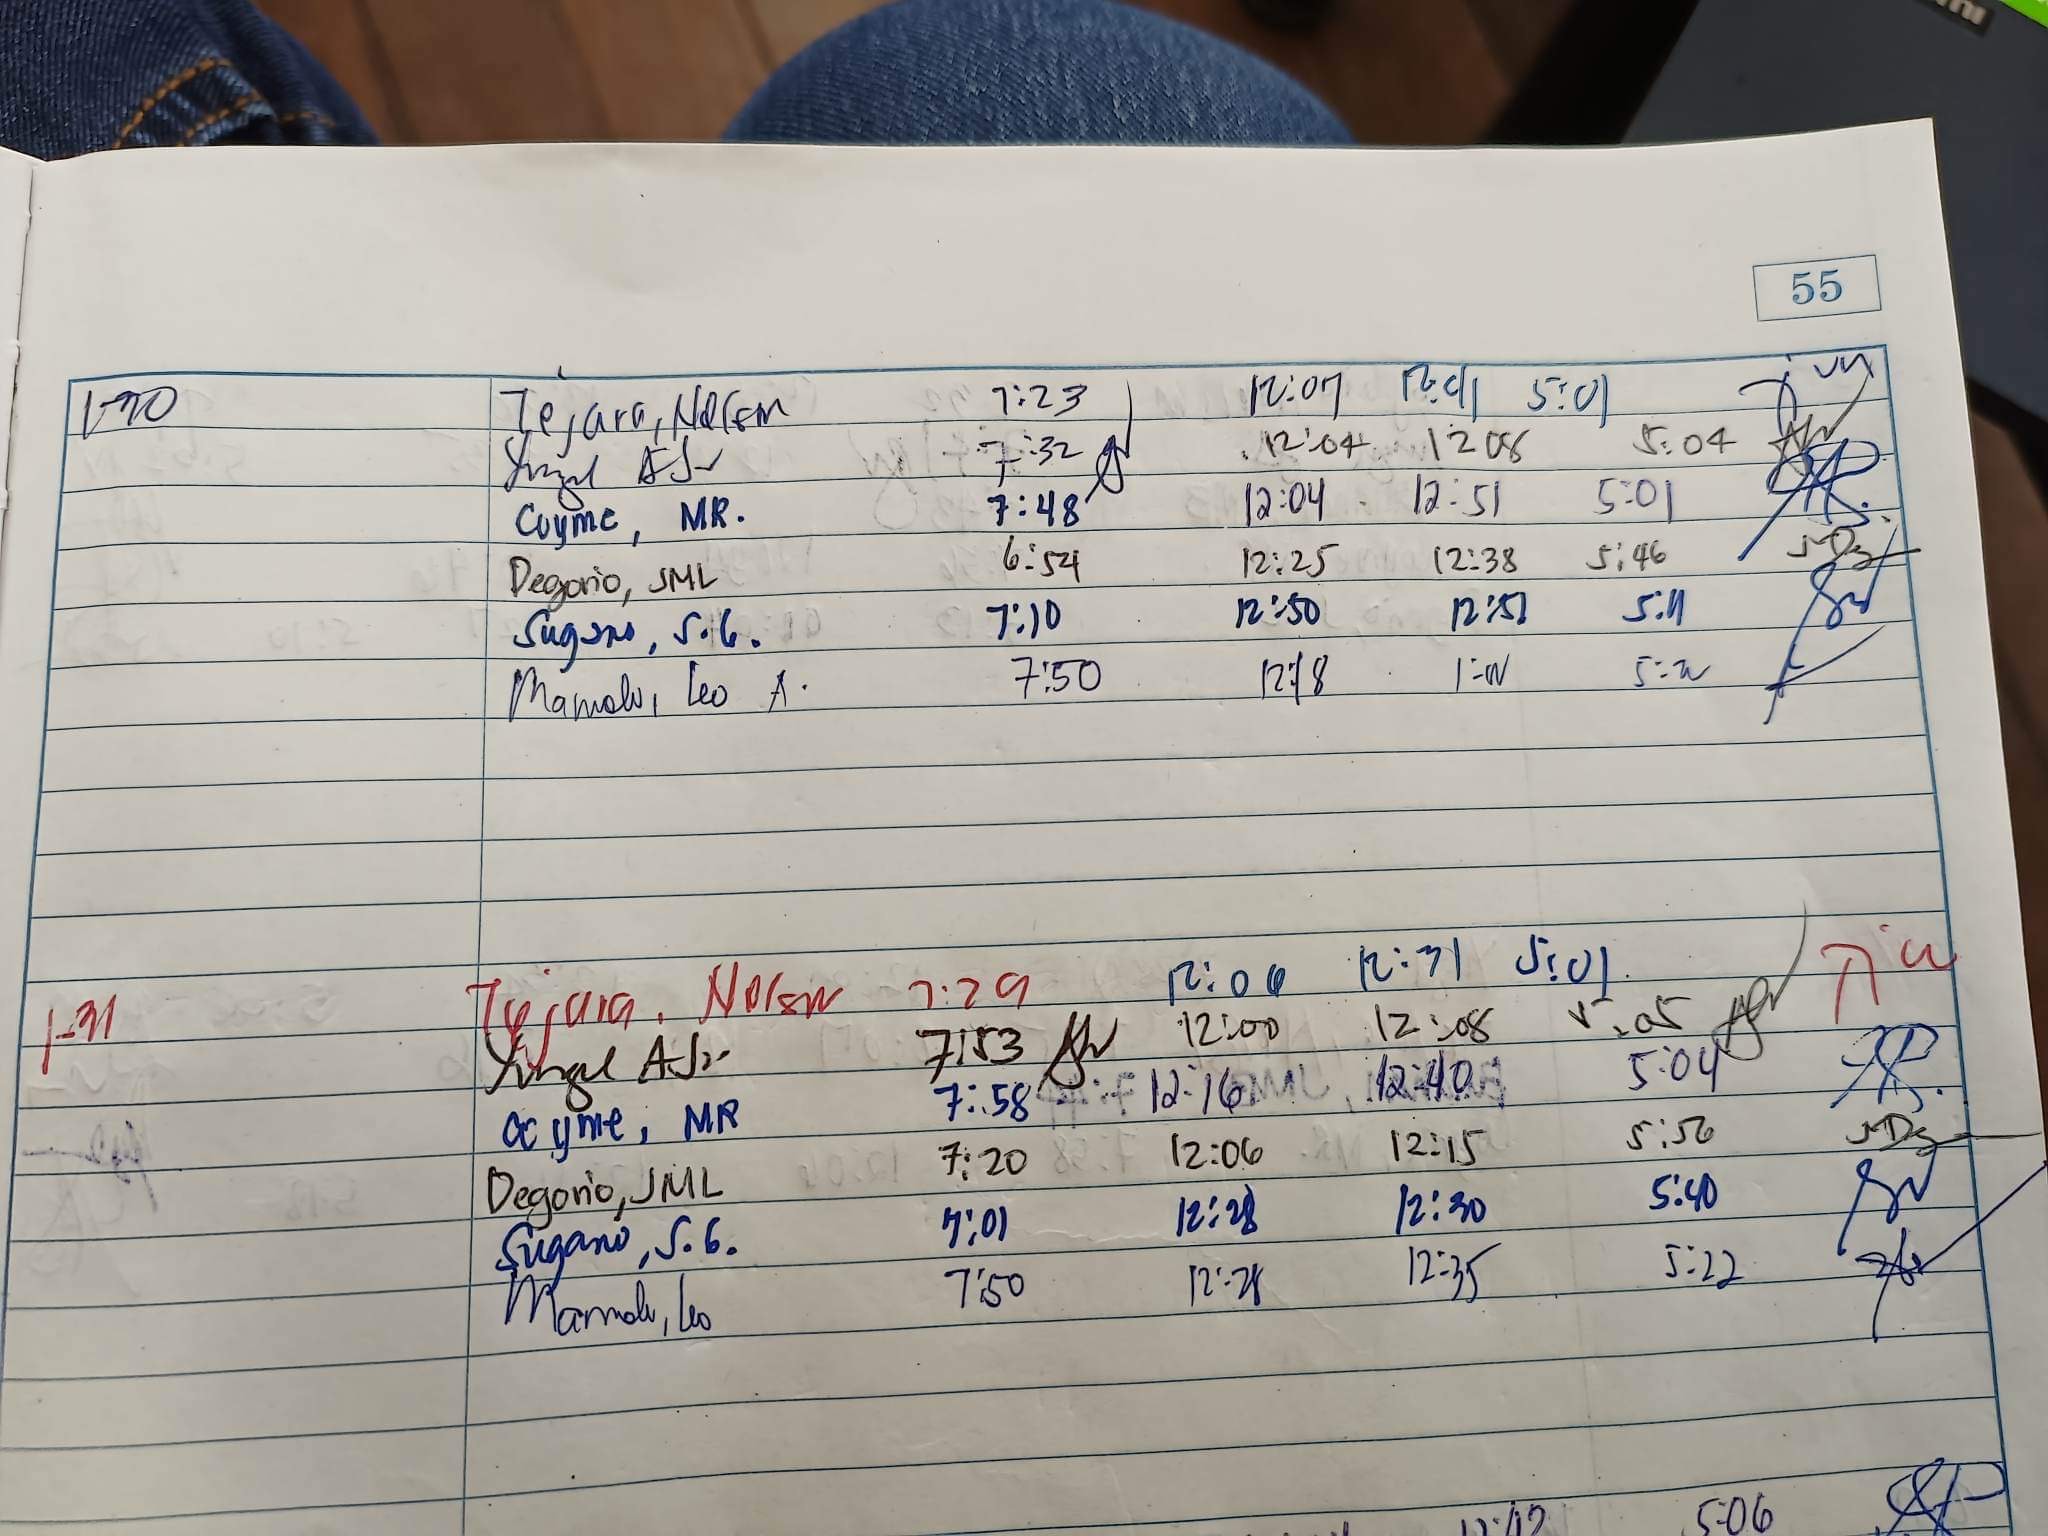 55
1-30 Tejara, Nelson 7:23 12:07 12:41 5:01
AJr 7:32 12:04 1208 5:04
Cuyme, MR. 7:48 12:04 12:51 5:01
Degorio, JML 6:54 12:25 12:38 5:46
Sugano, S.G. 7:10 12:50 12:51 5:11
Mamalo, Leo A. 7:50 12:18
1-31 Tejara, Nelson 7:29 12:06 12:31 5:01
AJr 7:53 12:00 12:08 5:05
Cuyme, MR 7:58 12:16 12:40 5:04
Degorio, JML 7:20 12:06 12:15 5:56
Sugano, S.G. 7:01 12:28 12:30 5:40
Mamalo, Leo 7:50 12:28 12:35 5:22
5:06